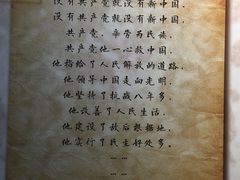 没有共产党就没有新中国，
没有共产党就没有新中国，
共产党，辛劳为民族，
共产党他一心救中国，
他指给了人民解放的道路，
他领导中国走向光明，
他坚持了抗战八年多，
他改善了人民生活，
他建设了敌后根据地，
他实行了民主好处多。
……
……